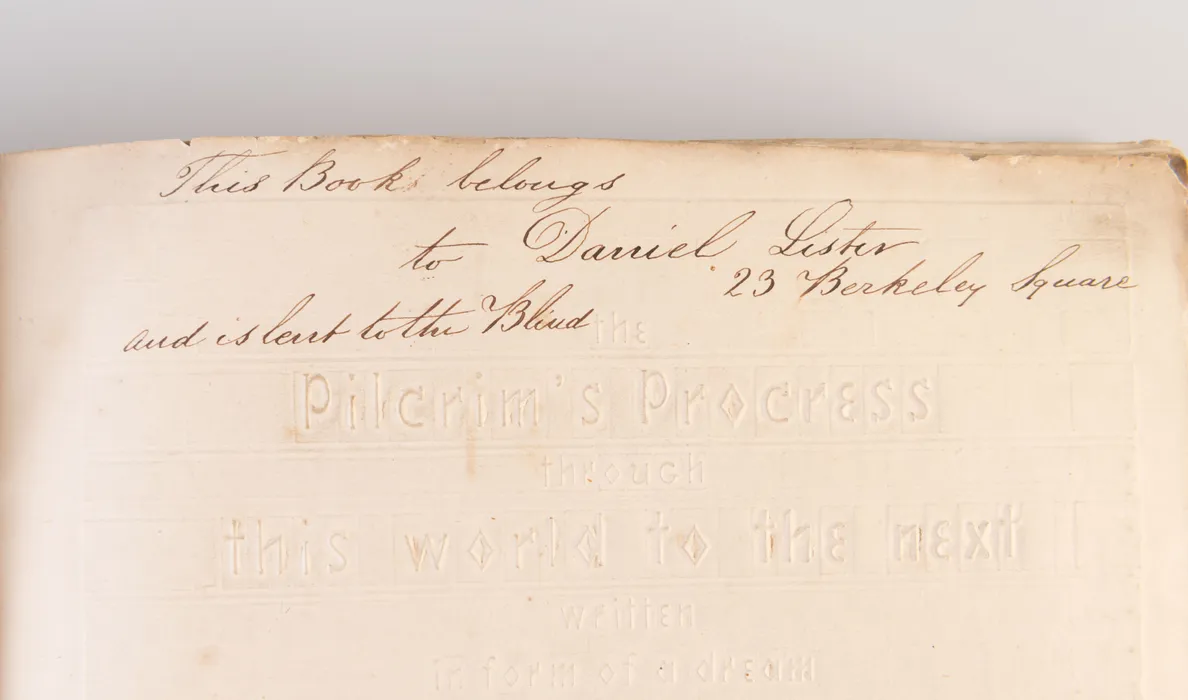 This Book belongs
to Daniel Lister
23 Berkeley Square
and is lent to the Blind
the
Pilgrim's Progress
through
this world to the next
written
in form of a dream